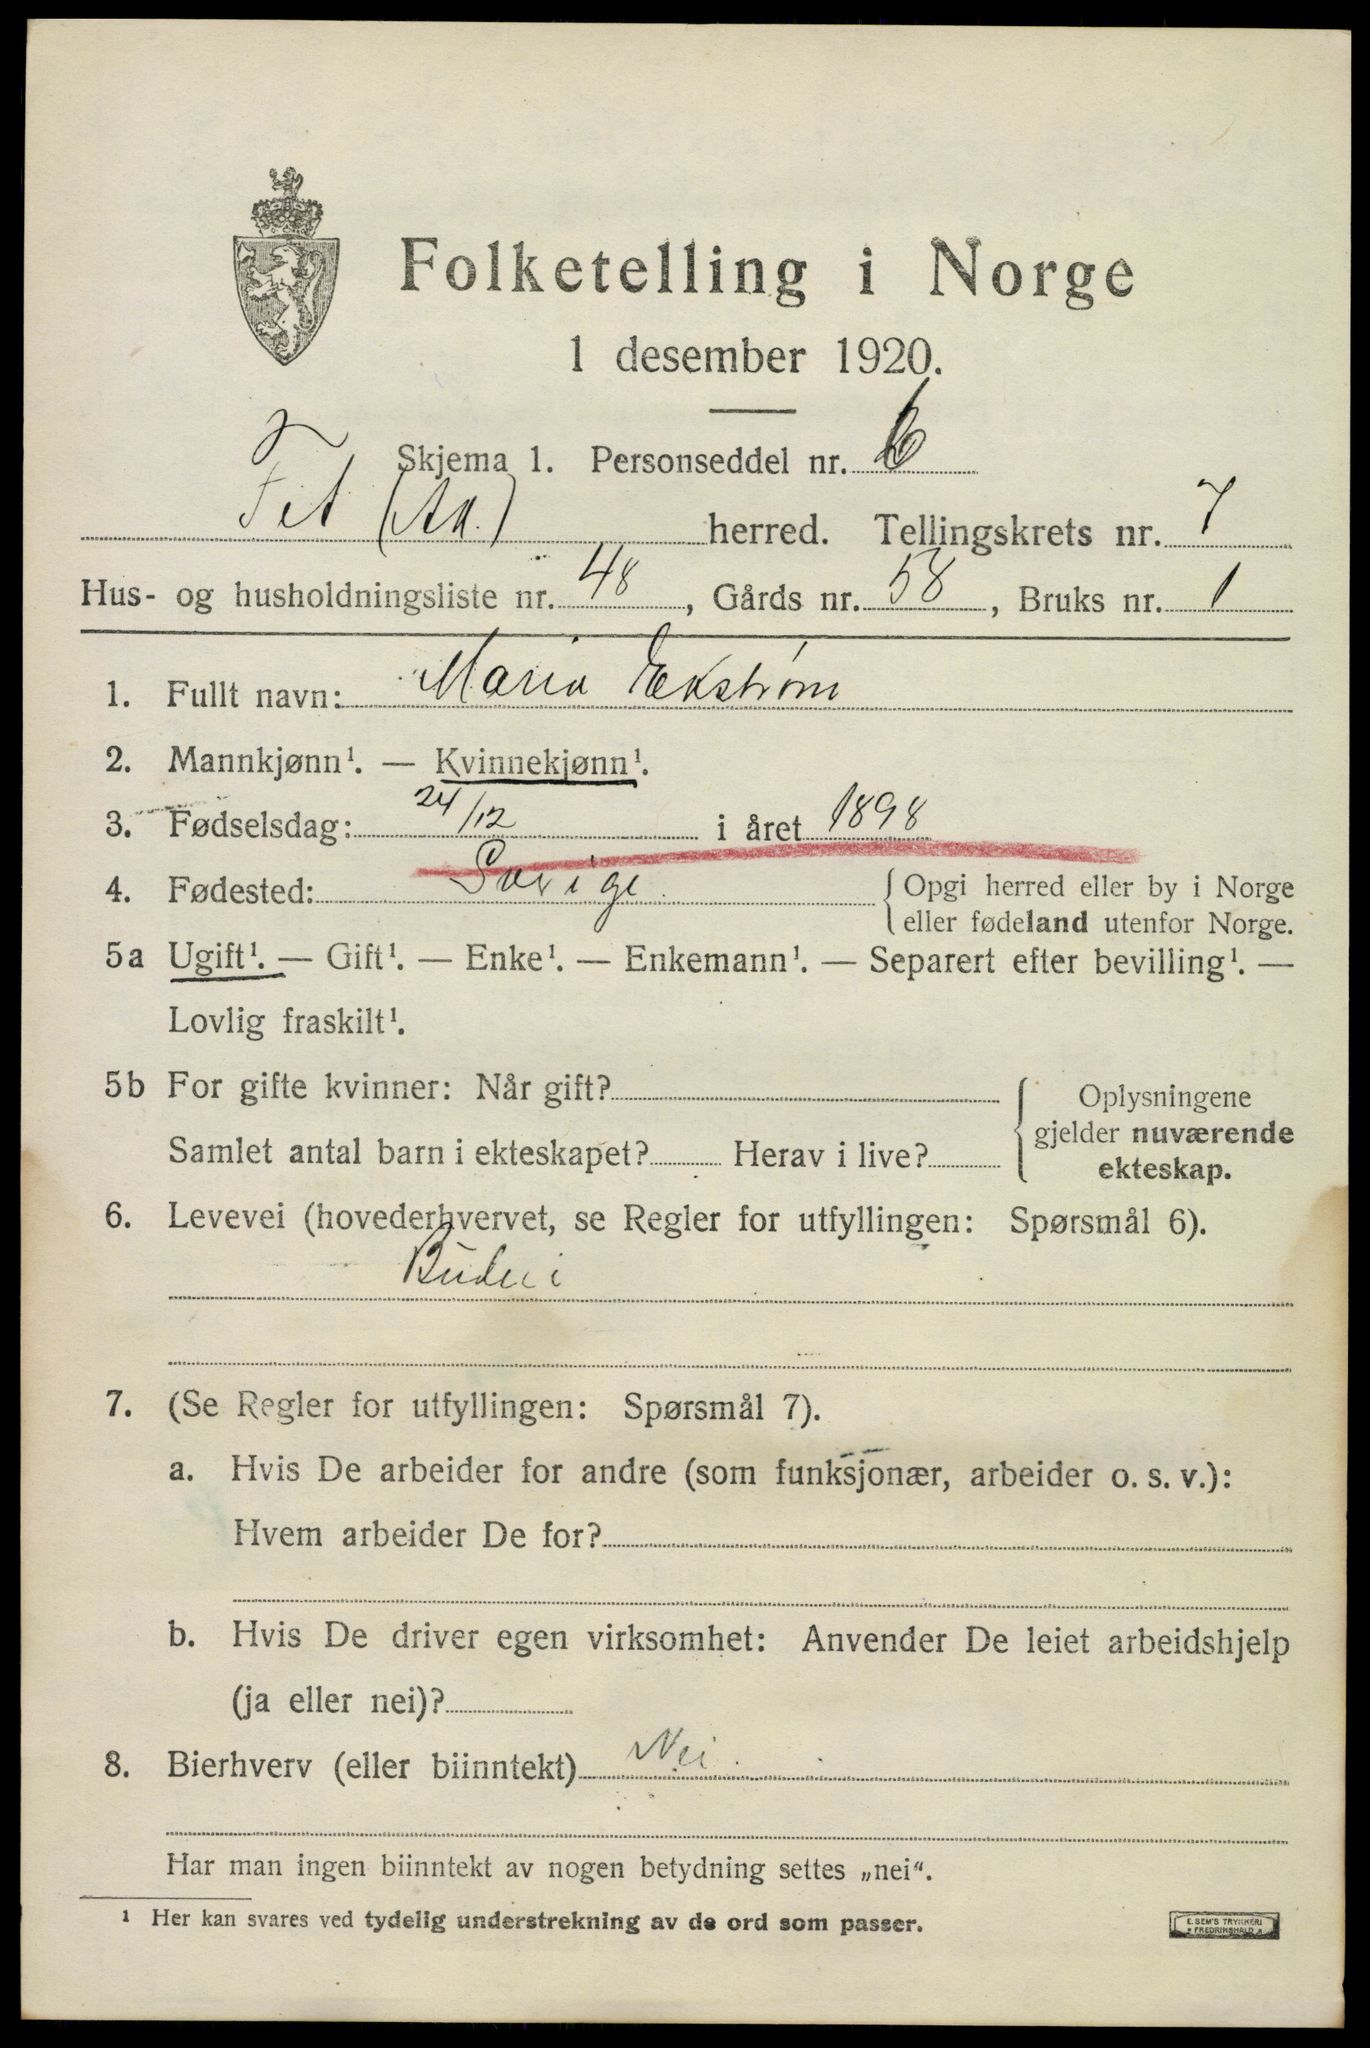 Folketelling i Norge
1 desember 1920.
Skjema 1. Personseddel nr. 6
Fet (Ak.) herred. Tellingskrets nr. 7
Hus- og husholdningsliste nr. 48, Gårds nr. 58, Bruks nr. 1
1. Fullt navn: Maria Ekstrøm
2. Mannkjønn¹. — Kvinnekjønn¹.
3. Fødselsdag: 24/12 i året 1898
4. Fødested: Sverige { Opgi herred eller by i Norge
eller fødeland utenfor Norge.
5a Ugift¹. — Gift¹. — Enke¹. — Enkemann¹. — Separert efter bevilling¹. —
Lovlig fraskilt¹.
5b For gifte kvinner: Når gift?
Samlet antal barn i ekteskapet? Herav i live?
Oplysningene
gjelder nuværende
ekteskap.
6. Levevei (hovederhvervet, se Regler for utfyllingen: Spørsmål 6).
Budeie
7. (Se Regler for utfyllingen: Spørsmål 7).
a. Hvis De arbeider for andre (som funksjonær, arbeider o. s. v.):
Hvem arbeider De for?
b. Hvis De driver egen virksomhet: Anvender De leiet arbeidshjelp
(ja eller nei)?
8. Bierhverv (eller biinntekt) Nei.
Har man ingen biinntekt av nogen betydning settes „nei“.
¹ Her kan svares ved tydelig understrekning av de ord som passer.
E. SEM'S TRYKKERI
FREDRIKSHALD